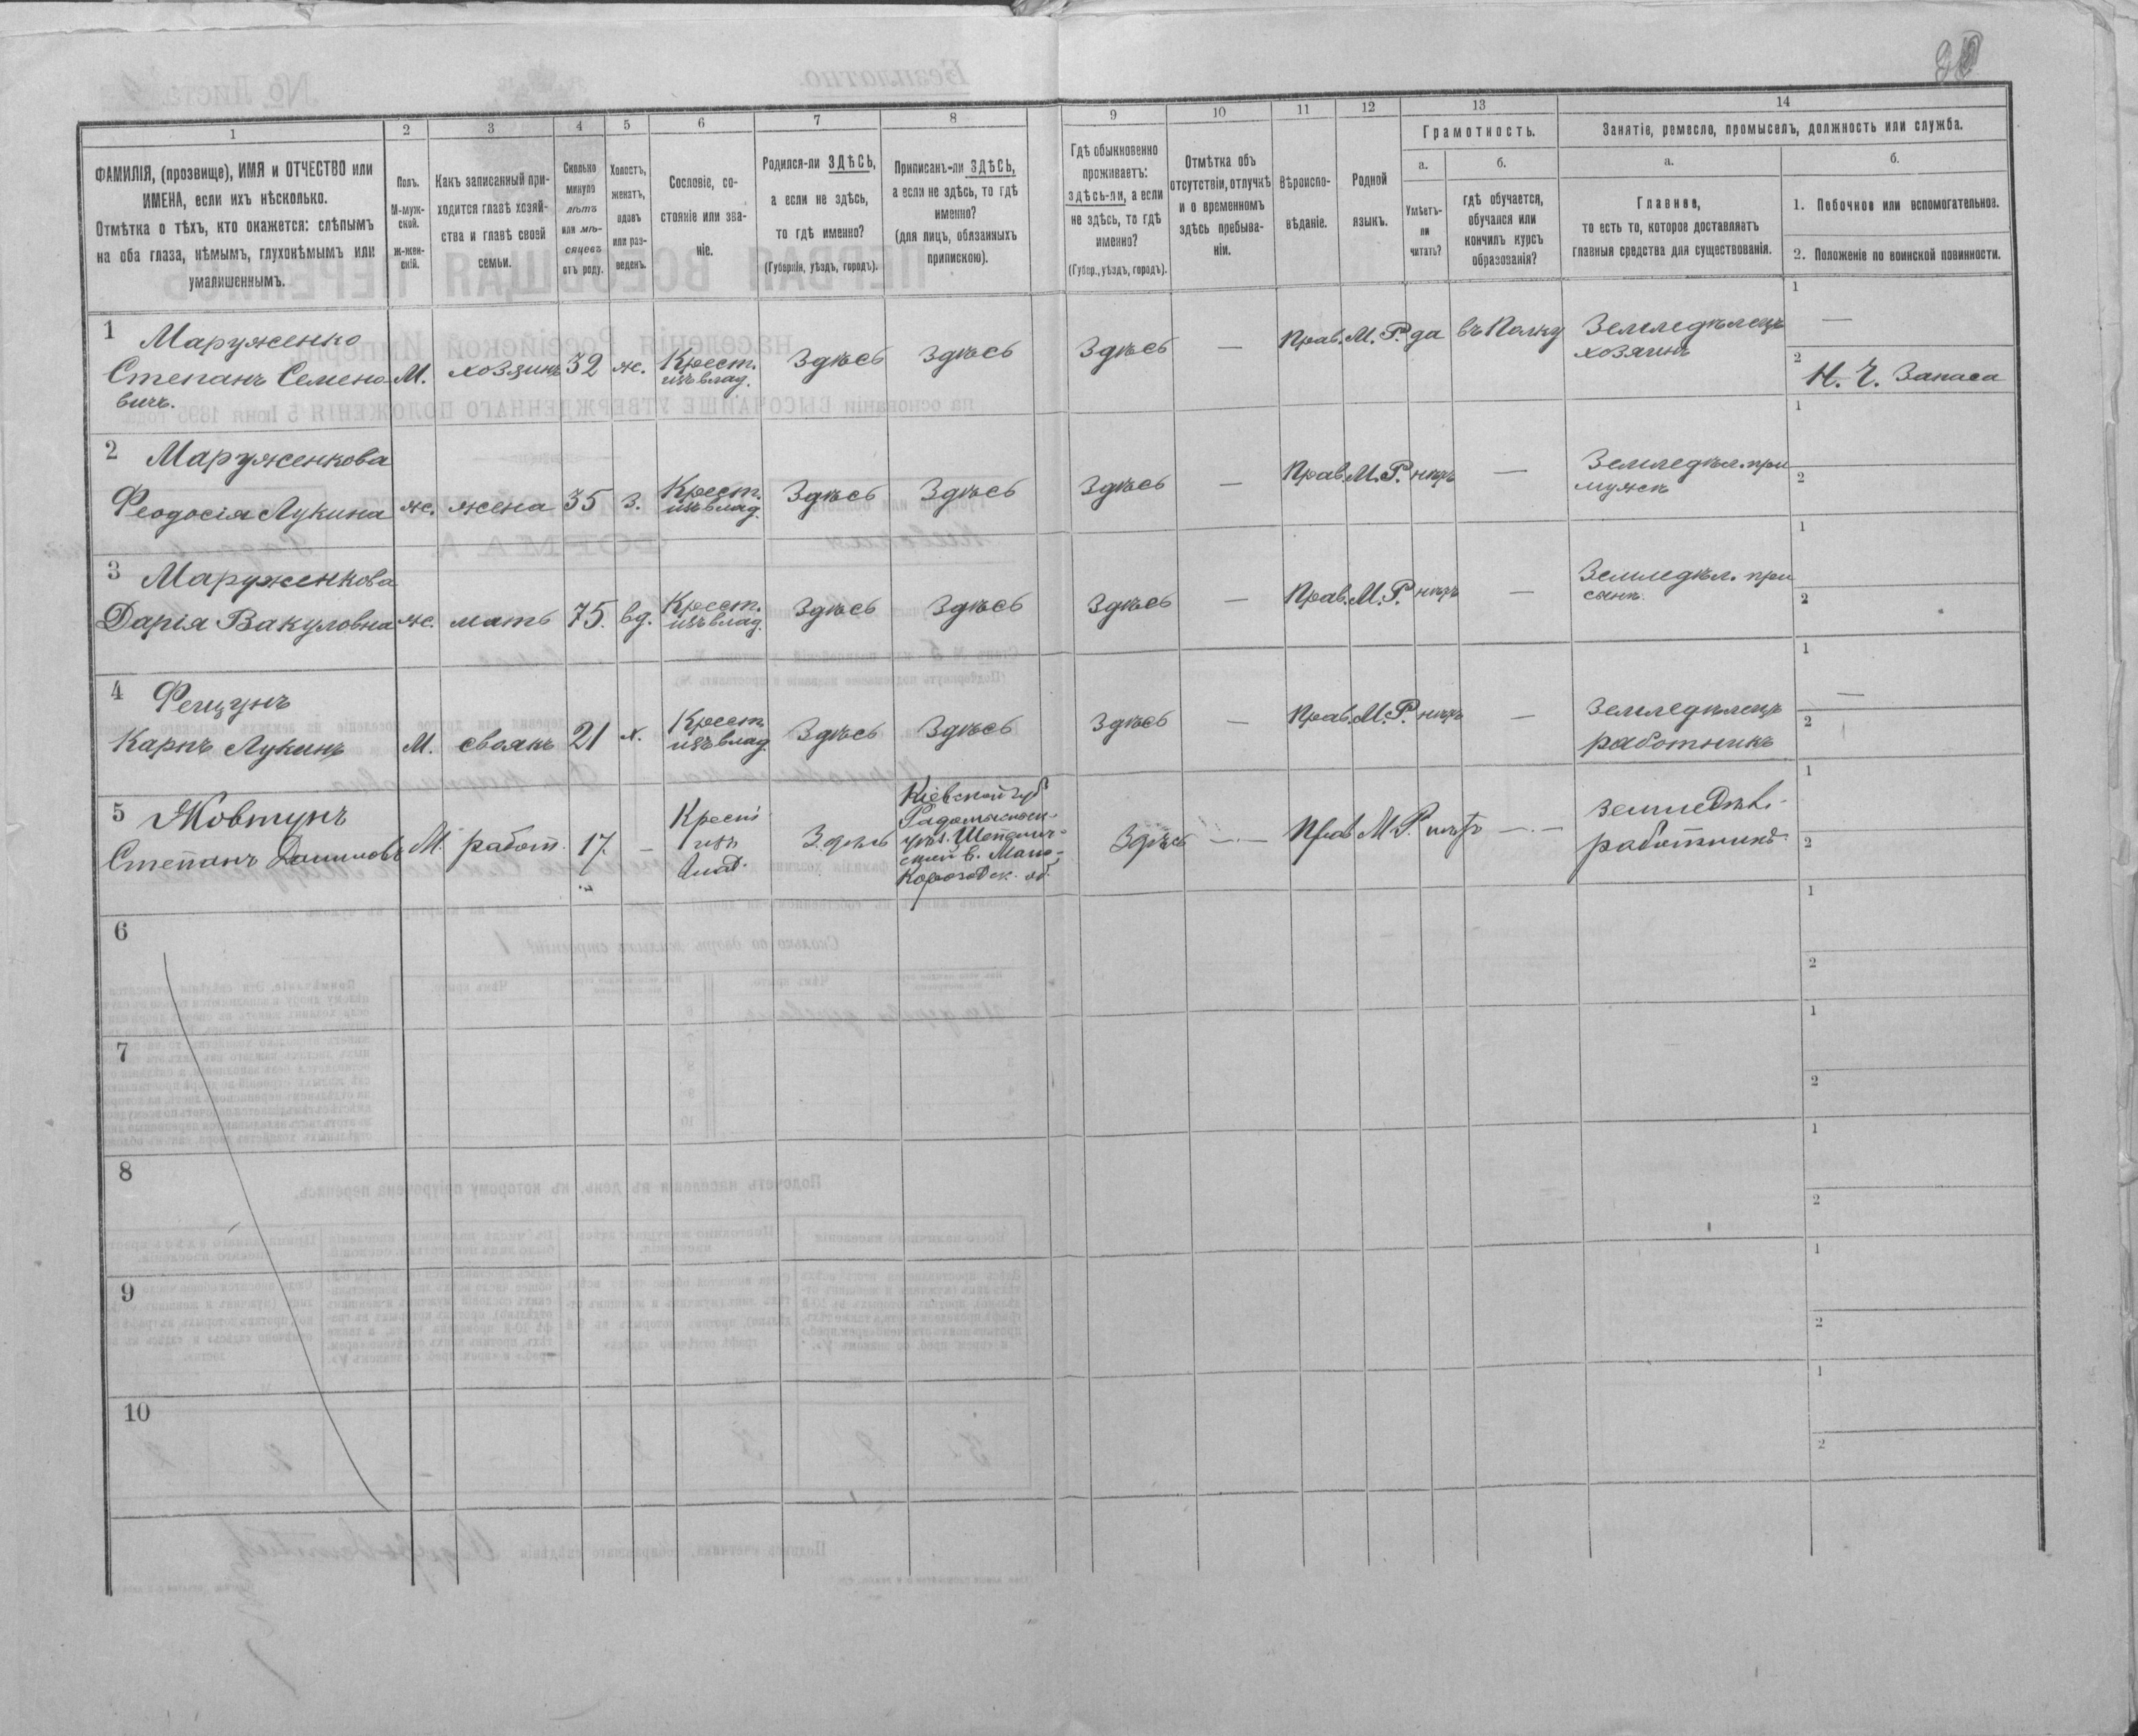 1 2 3 4 5 6 7 8 9 10 11 12 13 14
ФАМИЛІЯ, (прозвище), ИМЯ и ОТЧЕСТВО или
ИМЕНА, если ихъ нѣсколько.
Отмѣтка о тѣхъ, кто окажется: слѣпымъ
на оба глаза, нѣмымъ, глухонѣмымъ или
умалишеннымъ.
Полъ.
М-муж-
ской.
ж-жен-
скій.
Какъ записанный при-
ходится главѣ хозяй-
ства и главѣ своей
семьи.
Сколько
минуло
лѣтъ
или мѣ-
сяцевъ
отъ роду.
Холостъ,
женатъ,
вдовъ
или раз-
веденъ.
Сословіе, со-
стояніе или зва-
ніе.
Родился-ли ЗДѢСЬ,
а если не здѣсь,
то гдѣ именно?
(Губернія, уѣздъ, городъ).
Приписанъ-ли ЗДѢСЬ,
а если не здѣсь, то гдѣ
именно?
(для лицъ, обязанныхъ
припискою).
Гдѣ обыкновенно
проживаетъ:
здѣсь-ли, а если
не здѣсь, то гдѣ
именно?
(Губер., уѣздъ, городъ).
Отмѣтка объ
отсутствіи, отлучкѣ
и о временномъ
здѣсь пребыва-
ніи.
Вѣроиспо-
вѣданіе.
Родной
языкъ.
Грамотность.
а.
Умѣетъ-
ли
читать?
б.
гдѣ обучается,
обучался или
кончилъ курсъ
образованія?
Занятіе, ремесло, промыселъ, должность или служба.
а.
Главное,
то есть то, которое доставляетъ
главныя средства для существованія.
б.
1. Побочное или вспомогательное.
2. Положеніе по воинской повинности.
1 Маруженко
Степанъ Семено-
вичъ.
М.
хозяинъ
32
ж.
Крест.
изъ влад.
Здѣсь
Здѣсь
Здѣсь
—
Прав.
М. Р.
да
въ Полку
Земледѣлецъ
хозяинъ
1 —
2 Н. Ч. Запаса
2 Маруженкова
Феодосія Лукина
ж.
жена
35
з.
Крест.
изъ влад.
Здѣсь
Здѣсь
Здѣсь
—
Прав.
М. Р.
нѣтъ
—
Земледѣл. при
мужѣ
1
2
3 Маруженкова
Дарія Вакуловна
ж.
мать
75.
вд.
Крест.
изъ влад.
Здѣсь
Здѣсь
Здѣсь
—
Прав.
М. Р.
нѣтъ
—
Земледѣл. при
сынѣ.
1
2
4 Фещунъ
Карпъ Лукинъ
М.
своякъ
21
х.
Крест.
изъ влад.
Здѣсь
Здѣсь
Здѣсь
—
Прав.
М. Р.
нѣтъ
—
Земледѣлецъ
работникъ
1 —
2
5 Жовтунъ
Степанъ Даниловъ
М.
работ.
17
—
Крест
изъ
влад.
Здѣсь
Кіевской губ
Радомысльск.
уѣз.
в. Мало-
Корогодск. об.
Здѣсь
—
Прав
М. Р.
нѣтъ
—
земледѣл.
работникъ.
1
2
6
1
2
7
1
2
8
1
2
9
1
2
10
1
2